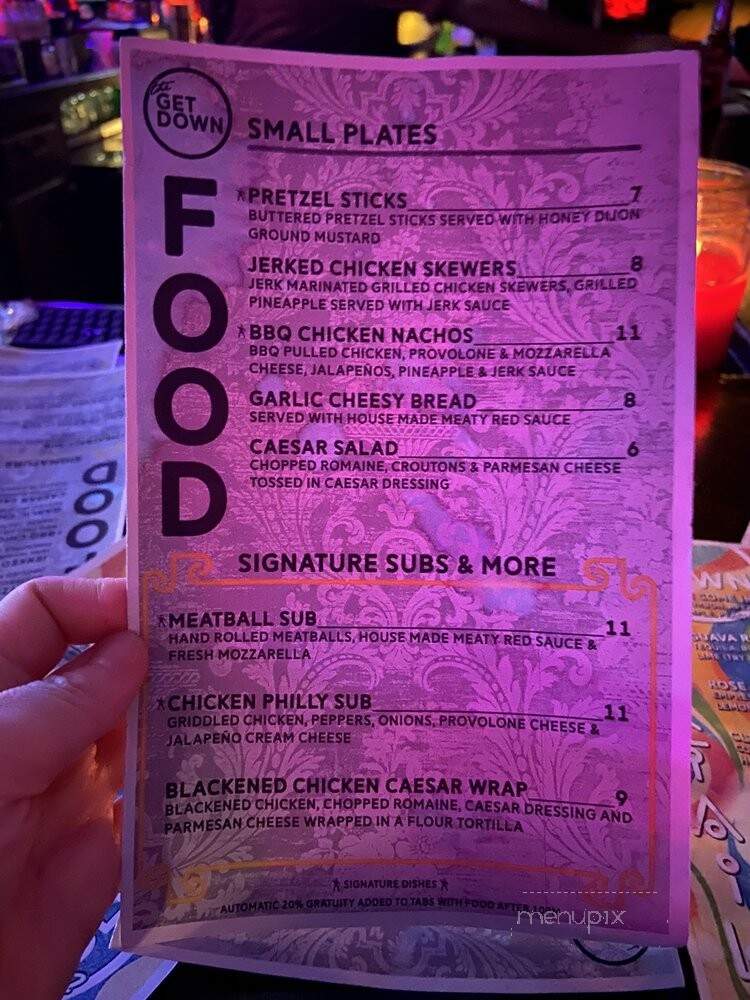 the
GET
DOWN
SMALL PLATES
FOOD
PRETZEL STICKS 7
BUTTERED PRETZEL STICKS SERVED WITH HONEY DIJON
GROUND MUSTARD
JERKED CHICKEN SKEWERS 8
JERK MARINATED GRILLED CHICKEN SKEWERS, GRILLED
PINEAPPLE SERVED WITH JERK SAUCE
BBQ CHICKEN NACHOS 11
BBQ PULLED CHICKEN, PROVOLONE & MOZZARELLA
CHEESE, JALAPEÑOS, PINEAPPLE & JERK SAUCE
GARLIC CHEESY BREAD 8
SERVED WITH HOUSE MADE MEATY RED SAUCE
CAESAR SALAD 6
CHOPPED ROMAINE, CROUTONS & PARMESAN CHEESE
TOSSED IN CAESAR DRESSING
SIGNATURE SUBS & MORE
MEATBALL SUB 11
HAND ROLLED MEATBALLS, HOUSE MADE MEATY RED SAUCE &
FRESH MOZZARELLA
CHICKEN PHILLY SUB 11
GRIDDLED CHICKEN, PEPPERS, ONIONS, PROVOLONE CHEESE &
JALAPEÑO CREAM CHEESE
BLACKENED CHICKEN CAESAR WRAP 9
BLACKENED CHICKEN, CHOPPED ROMAINE, CAESAR DRESSING AND
PARMESAN CHEESE WRAPPED IN A FLOUR TORTILLA
SIGNATURE DISHES
AUTOMATIC 20% GRATUITY ADDED TO TABS WITH FOOD AFTER 10PM
menupix